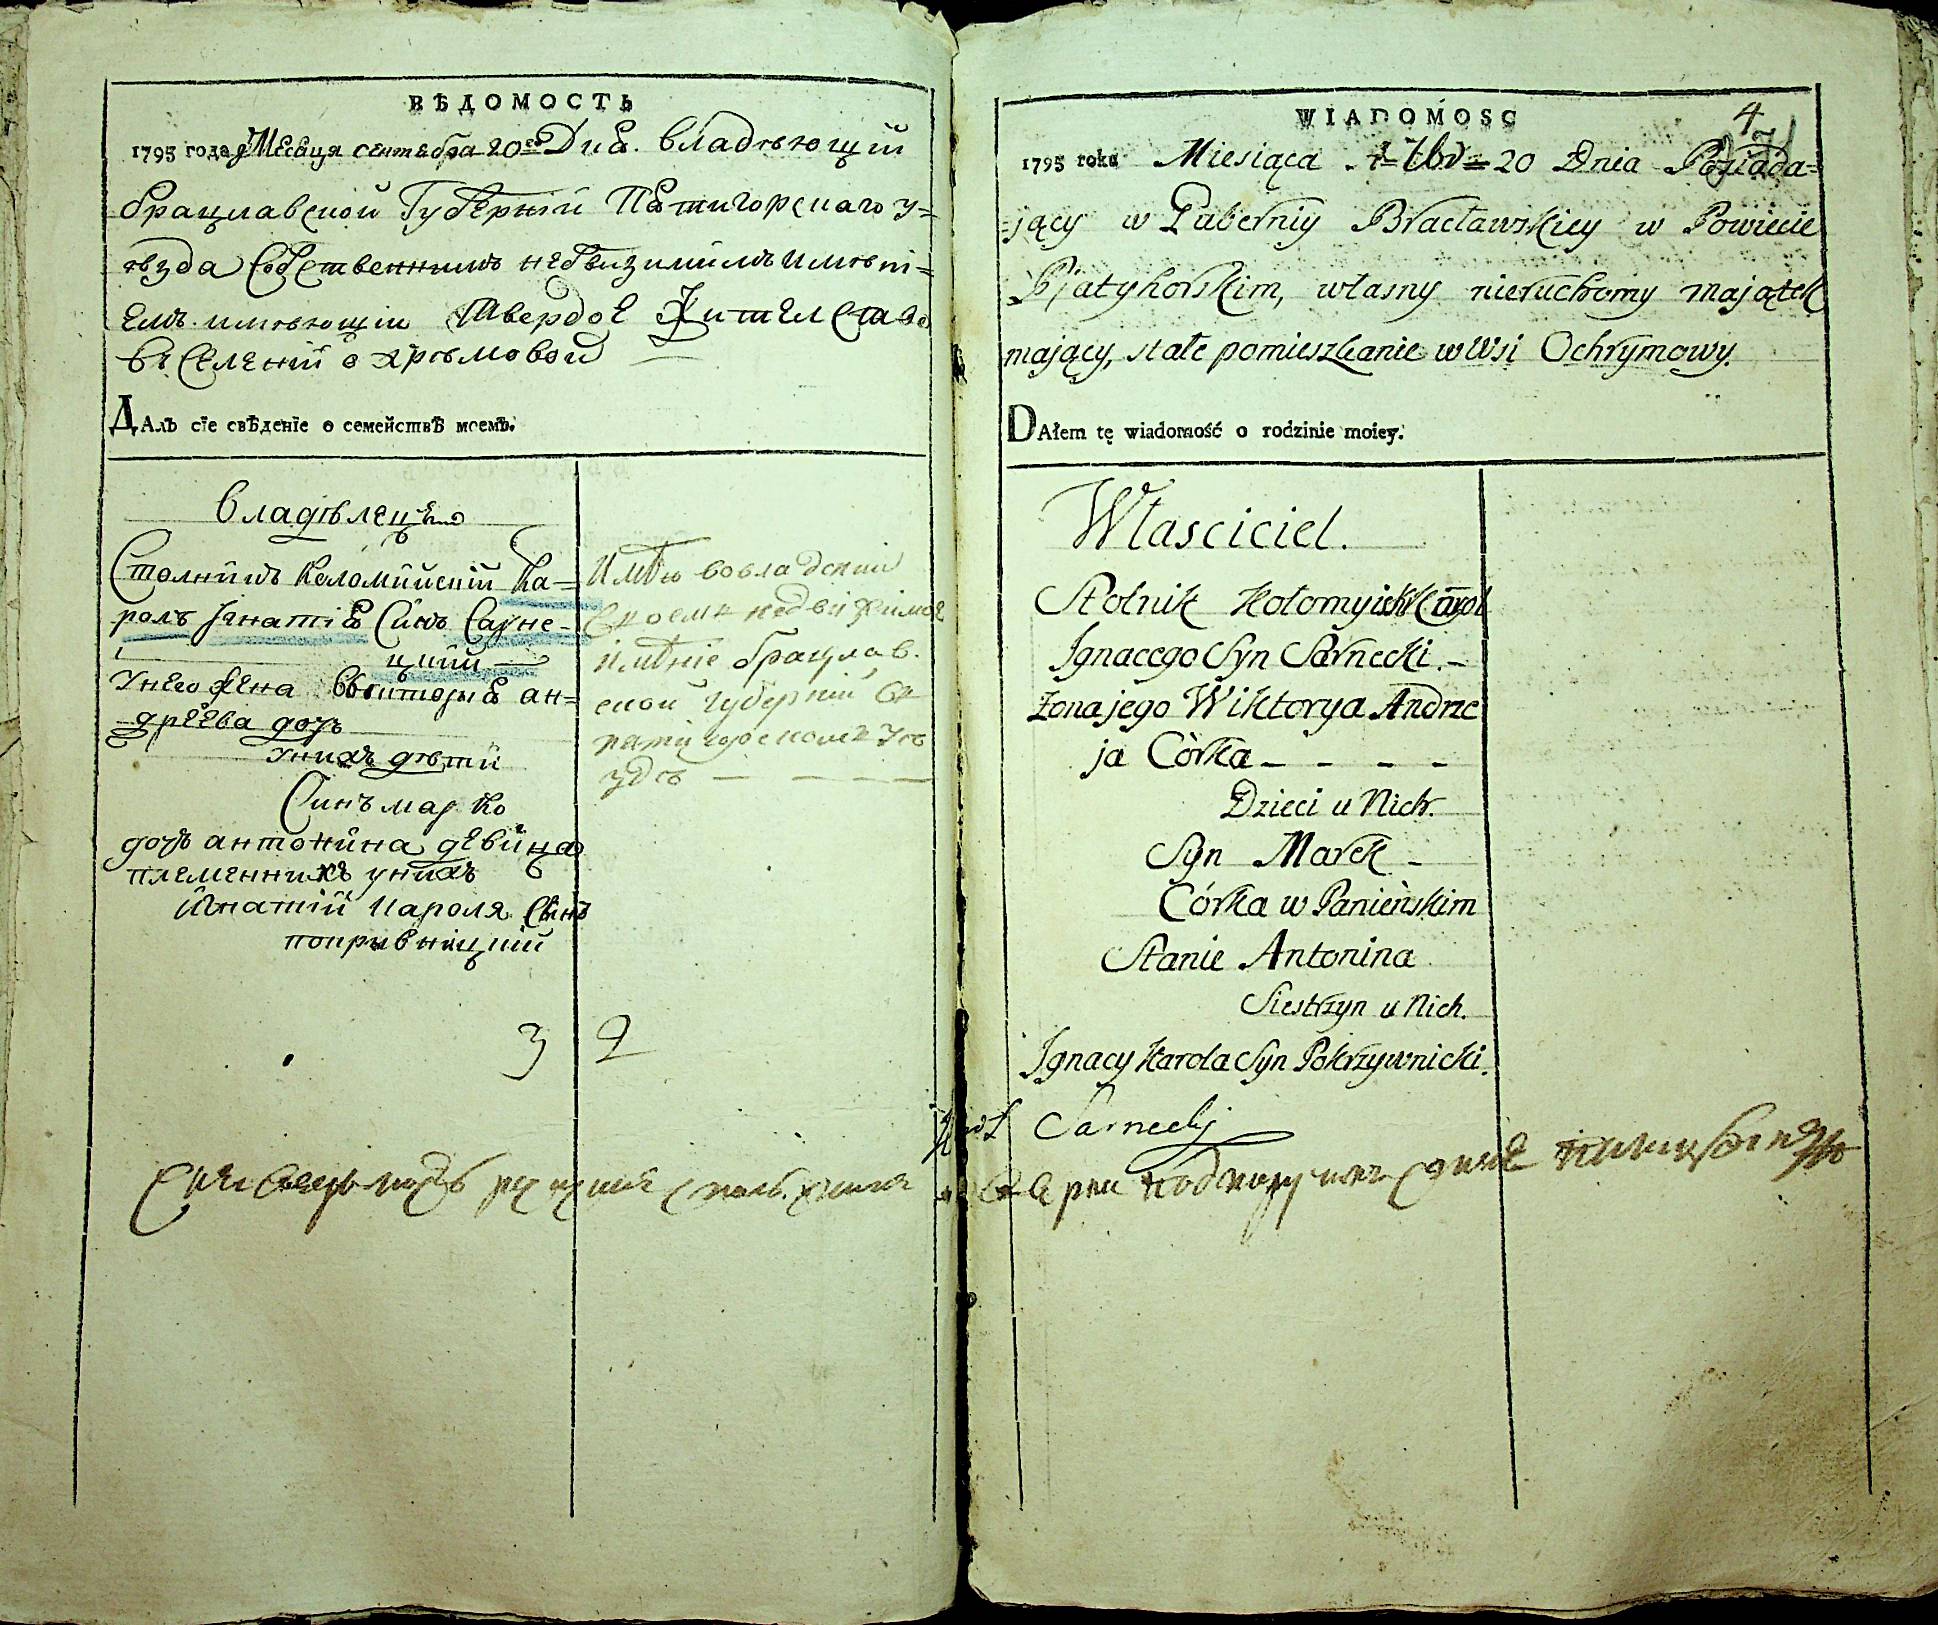 ВѢДОМОСТЬ
1795 года Месяца сентабра 20го Дня. владѣющій
брацлавской Губѣрніи Пятигорскаго у=
ѣзда собственнимъ недвизимимъ имѣні=
емъ имѣющіи твердое Жителство
вѣ селеніи охрѣмовой
ДАлъ сїе свѣденїе о семействѣ моемъ.
владѣлецъ
Столникъ Коломийскій Ка=
ролъ Игнатія Синъ Сарне-
цкий
У него жена Викторыя ан=
дреева дочъ
У нихъ дѣти
Синъ марко
дочъ антонина девица
племенникъ у нихъ
Игнатій Кароля Синъ
покривницкій
Имѣю во владении
своемъ недвижимое
имѣніе брацлав.
ской губерніи въ
пятигорскомъ уѣ
здѣ — — —
3 2
4
WIADOMOSC
1795 roku Miesiąca 7br 20 Dnia Posiada=
=jący w Guberniy Bracławskiey w Powiecie
Pjatyhorskim, własny nieruchomy majątek
mający, stałe pomieszkanie w Wsi Ochrymowy.
DAłem tę wiadomość o rodzinie moiey.
Własciciel.
Stolnik Kołomyiski Karol
Ignacego Syn Sarnecki. –
żona jego Wiktorya Andrze
ja Córka – – – –
Dzieci u Nich.
Syn Marek –
Córka w Panieńskim
Stanie Antonina
Siestrzyn u Nich.
Ignacy Karola Syn Pokrzywnicki.
Karol Sarnecky